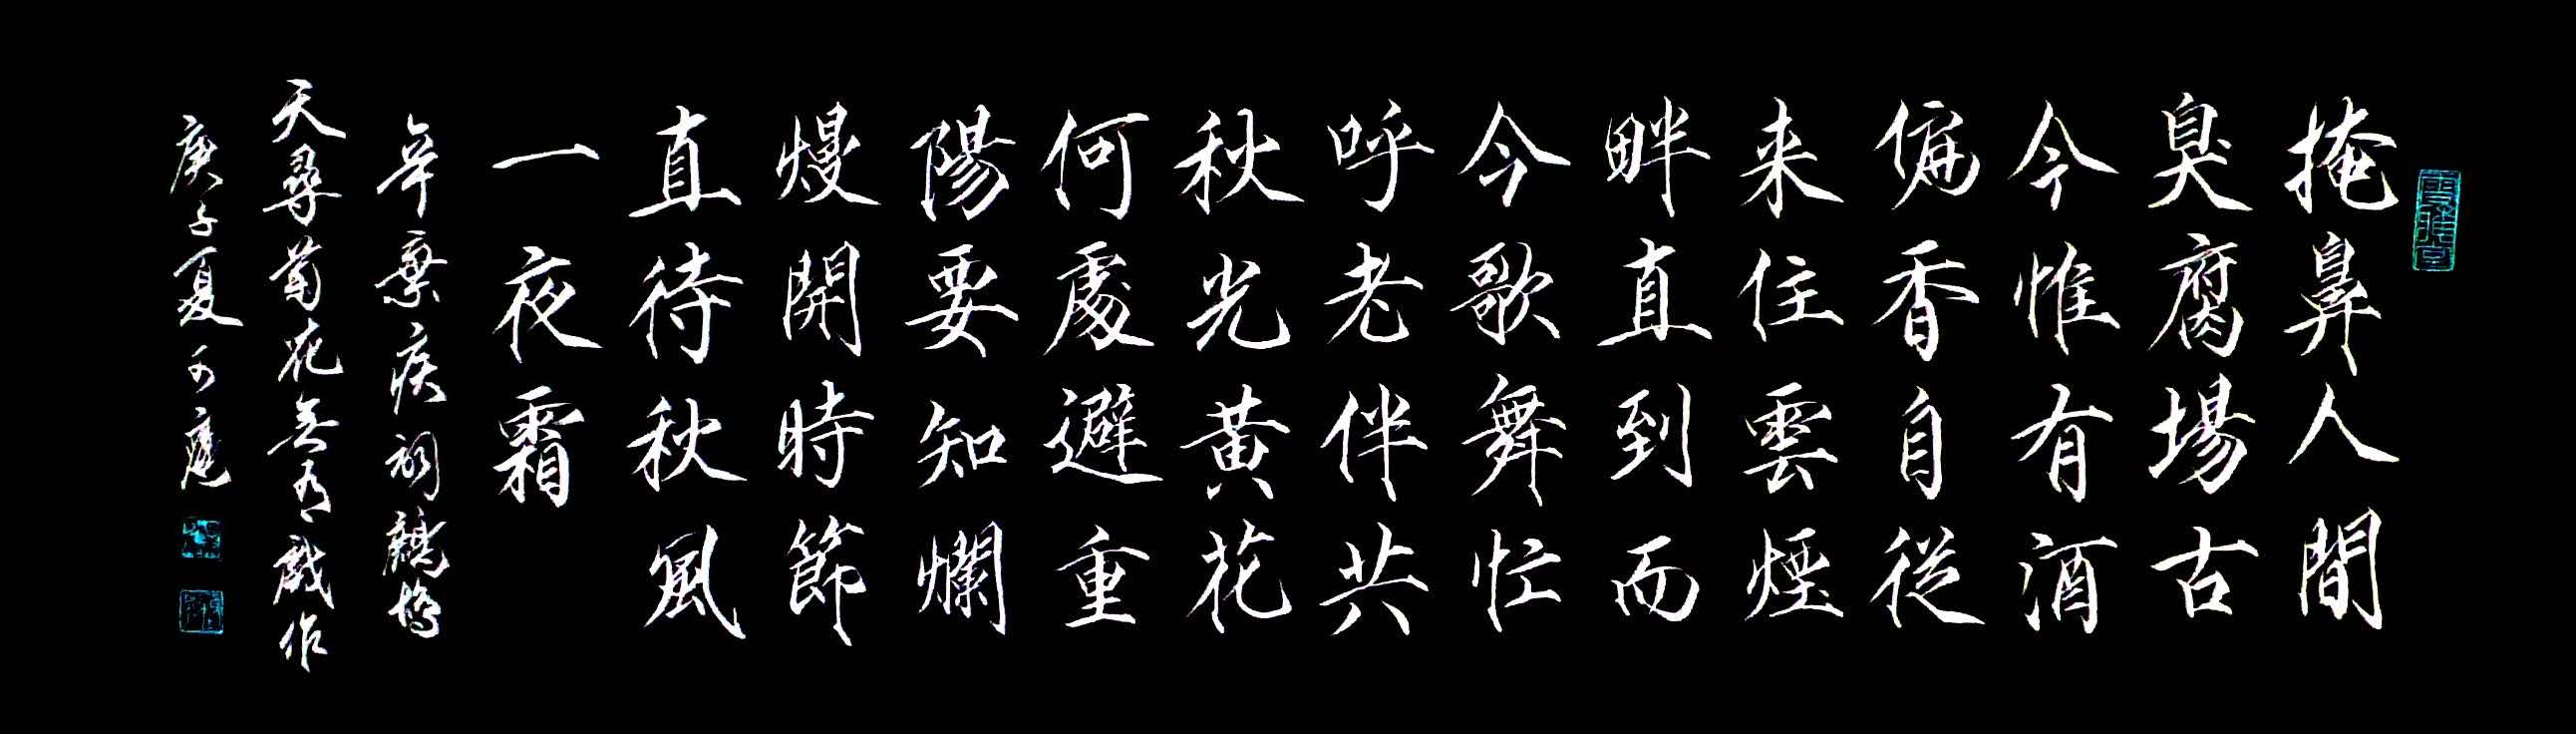 掩鼻人間
臭腐場古
今惟有酒
偏香自從
来住雲煙
畔直到而
今歌舞忙
呼老伴共
秋光黄花
何處避重
陽要知爛
熳開時節
直待秋風
一夜霜
辛棄疾詞鷓鴣
天尋菊花無有戲作
庚子夏